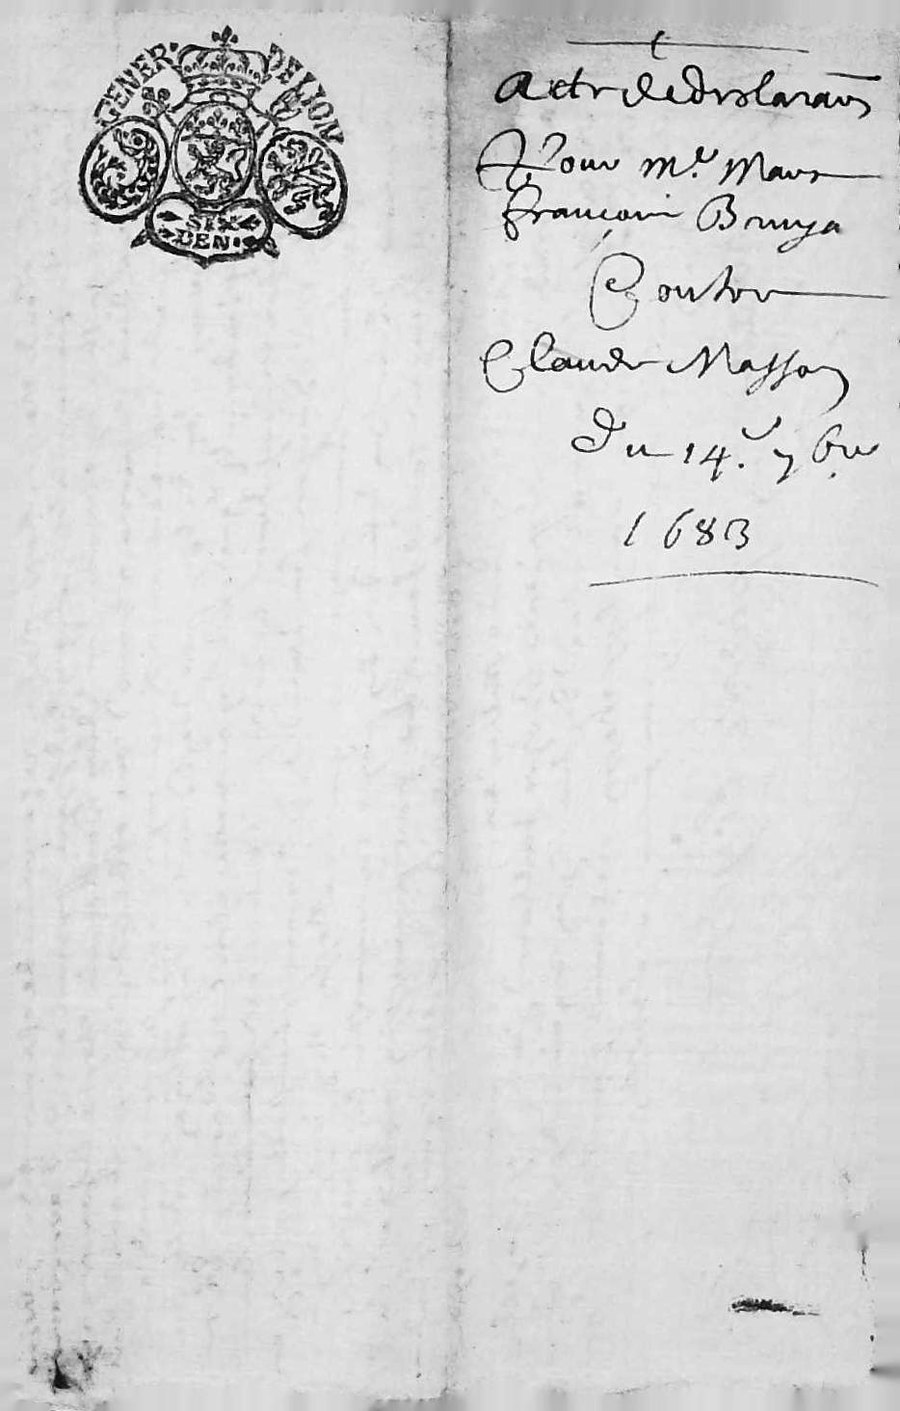 GENER· DE LION
SIX
DEN·
Acte de declaraõn
Pour Mᵉ. Marc
François Bruya
Contre
Claude Masson
Du 14ᵉ. 7bre
1683